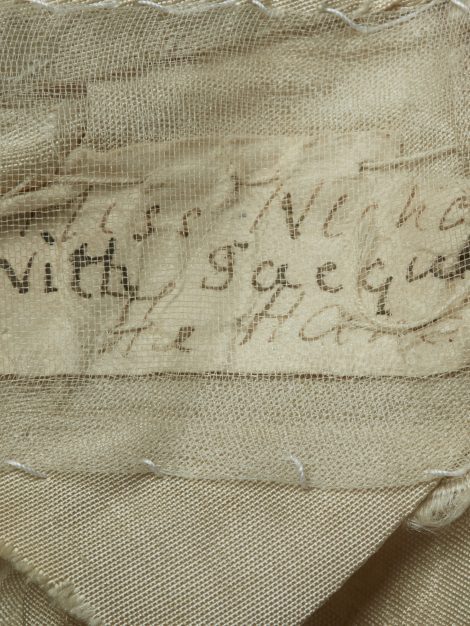 Miss Nicho
with Jacqu
the Han